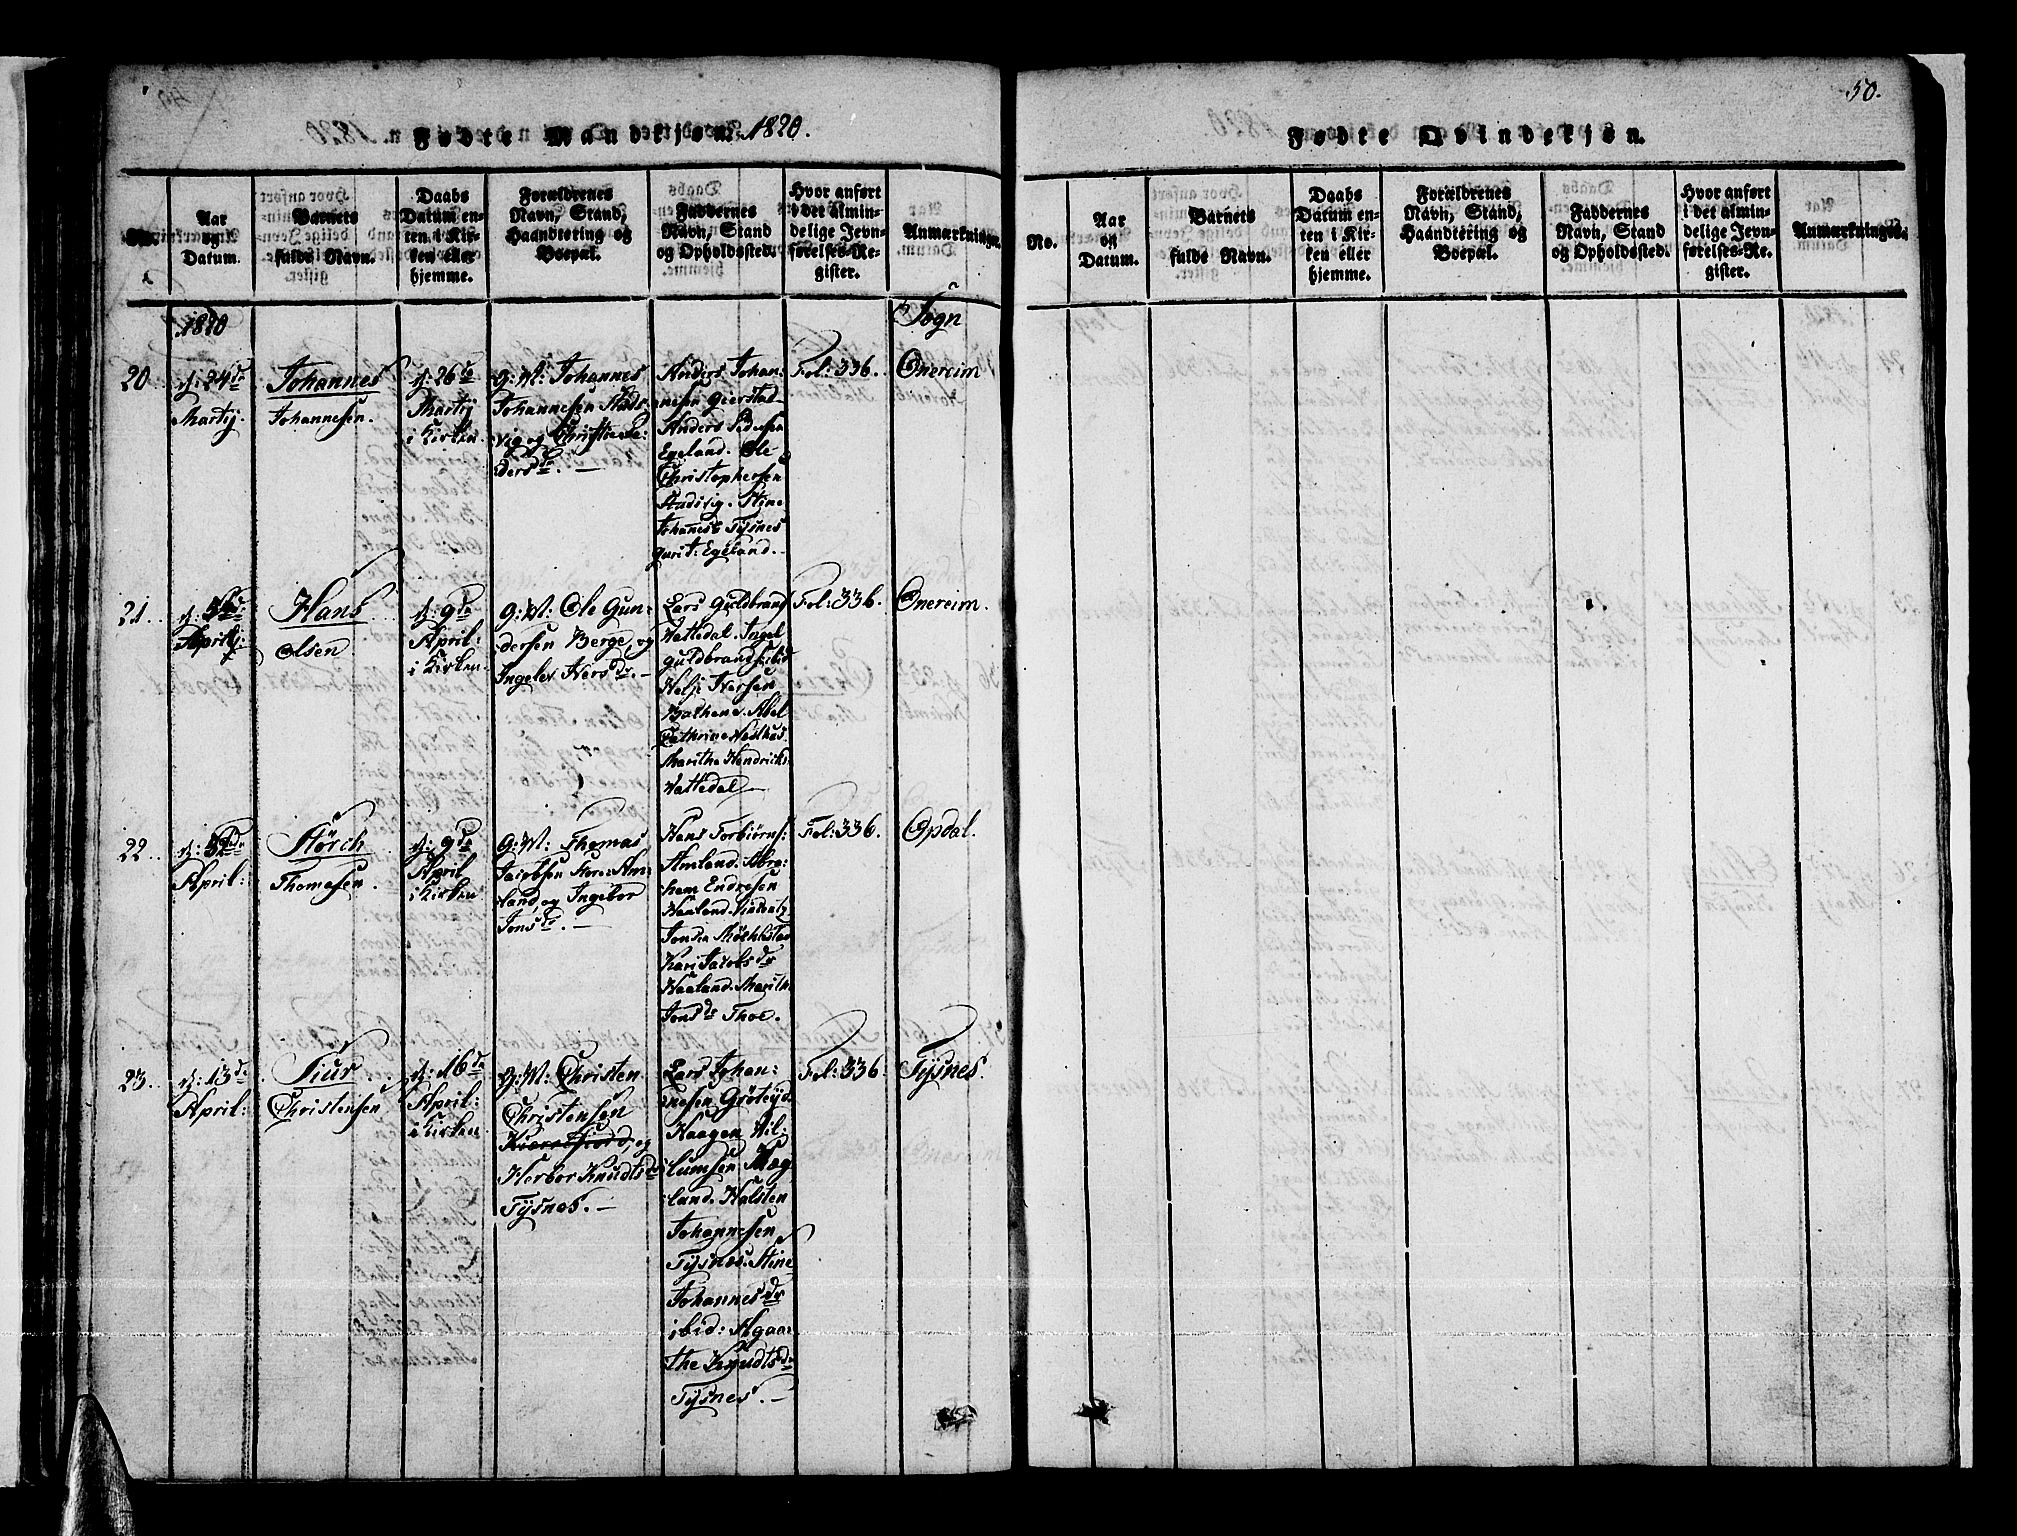 Fødte Mandkjøn. 1820.
No.
Aar
og
Datum.
Barnets
fulde Navn.
Daabs
Datum en-
ten i Kir-
ken eller
hjemme.
Forældrenes
Navn, Stand,
Haandtering og
Boepæl.
Faddernes
Navn, Stand
og Opholdssted.
Hvor anført
i det almin-
delige Jevn-
førelses-Re-
gister.
Anmærkninger.
1820
Sogn
20
d: 24de
Martij.
Johannes
Johannesen.
d: 26de
Martij
i Kirken.
G: M: Johannes
Johannesen Stads-
vig og Christie Pe-
dersdr. —
Anders Johan-
nesen Geerstad
Anders Pedersen
Egeland. Ole
Christophersen
Stadsvig. Stine
Johannesd Tysnes
Gurit: Egeland.
Fol: 336.
Onereim
21..
April
Hans
Olsen
d: 9de
April:
i Kirken.
G: M: Ole Gun-
dersen Berge og
Ingelev Iversdr. —
Lars Guldbrand
Vattedal. Ingel
Guldbrands: ibid
Helje Iversen
Bathene. Abel
Cathrine Nesthus.
Marithe Hendricks
Vattedal
Fol: 336.
Onereim.
22..
April:
Størch
Thomesen.
d: 9de
April
i Kirken
G: M: Thomas
Jacobsen Store: Am-
land, og Ingebor
Jonsdr. —
Hans Torbiørns:
Amland. Abra-
ham Endresen
Haaland.
Kari Jacobsdr
Haaland. Marith
Jonsdr Thoe.
Fol: 336.
Opdal.
23..
d: 13de
April:
Siur
Christensen
d: 16de
April:
i Kirken
G: M: Christen
Christensen
og
Herbor Knudtsdr
Tysnes. —
Lars Johan-
nesen Grøteyd
Haagen Wil-
lumsen Mæg-
land. Halsten
Johannesen
Tysnes. Stine
Johannesdr
ibid: Agaa-
the Knudtsdr
Tysnes. —
Fol: 336.
Tysnes.
50.
Fødte Qvindekjøn.
No.
Aar
og
Datum.
Barnets
fulde Navn.
Daabs
Datum en-
ten i Kir-
ken eller
hjemme.
Forældrenes
Navn, Stand,
Haandtering og
Boepæl.
Faddernes
Navn, Stand
og Opholdssted.
Hvor anført
i det almin-
delige Jevn-
førelses-Re-
gister.
Anmærkninger.